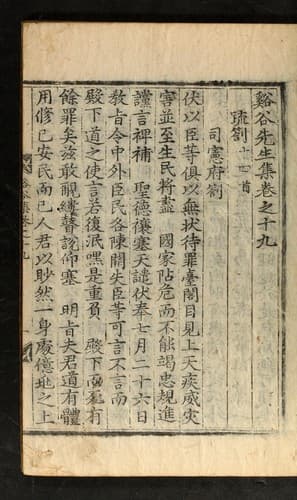 谿谷先生集卷之十九
疏劄 十四首
司憲府劄
伏以臣等俱以無狀待罪臺閣目見上天疾威灾
害並至生民將盡 國家阽危而不能竭忠規進
讜言裨補 聖德禳塞天譴伏奉七月二十六日
敎旨令中外臣民各陳闕失臣等可言不言而
殿下道之使言若復泯嘿是重負 殿下而罪有
餘罪矣玆敢覼縷瞽說仰塞 明旨夫君道有體
用修己安民而已人君以眇然一身處億兆之上
谷集卷十九